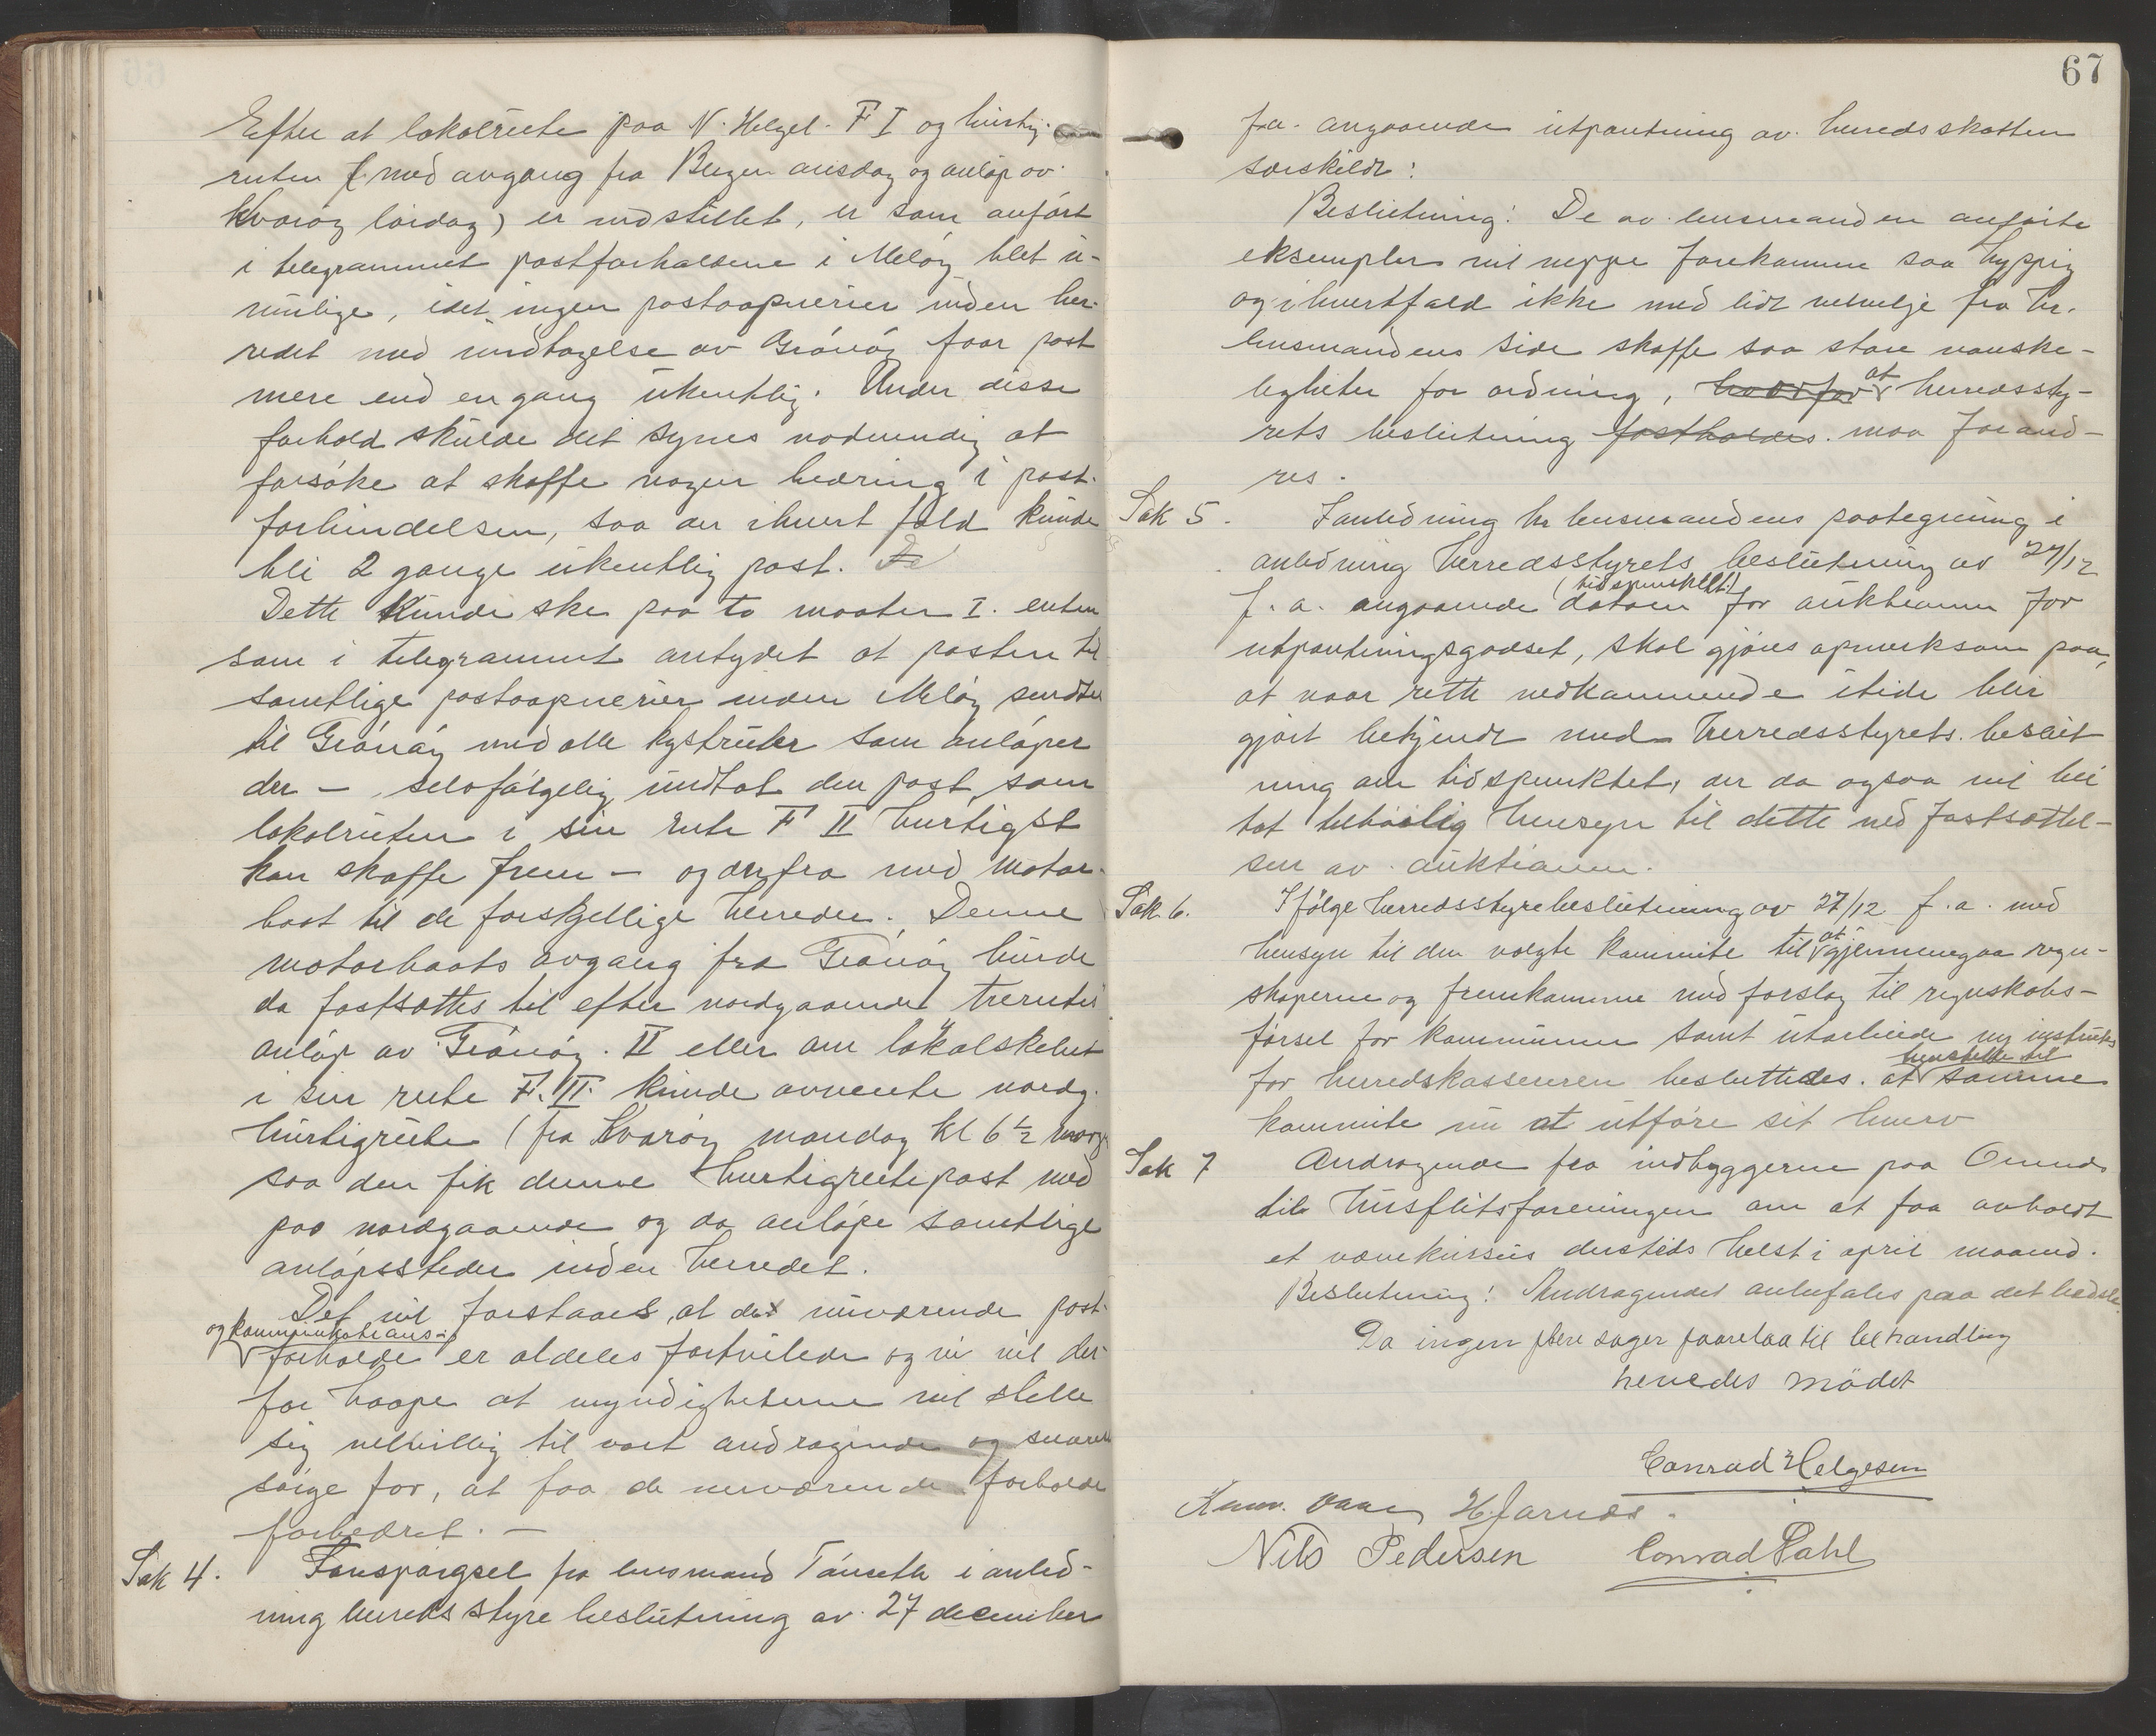 Efter at lokalrute paa N. Helgel. F I og hurtig-
ruten (med avgang fra Bergen onsdag og anløp av
Kvarøy lørdag) er indstillet, er som anført
i telegrammet postforholdene i Meløy blet u-
mulige, idet ingen postaapnerier inden her-
redet med undtagelse av Grønøy faar post
mere end en gang ukentlig. Under disse
forhold skulde det synes nødvendig at
forsøke at skaffe nogen bedring i post-
forbindelsen, saa der ihvert fald kunde
bli 2 gange ukentlig post. De
Dette kunde ske paa to maater I. enten
som i telegrammet antydet at posten til
samtlige postaapnerier inden Meløy sendtes
til Grønøy med alle kystruter som anløper
der – selvfølgelig undtat den post som
lokalruten i sin rute F II hurtigst
kan skaffe frem – og derfra med motor-
baat til de forskjellige herreder. Denne
motorbaats avgang fra Grønøy burde
da fastsættes til efter nordgaaende
anløp av Grønøy. II eller om lokalskibet
i sin rute F. II. kunde avvente nordg.
hurtigrute (fra Kvarøy mandag kl 6½ morg
saa den fik denne hurtigrutepost med
paa nordgaaende og da anløpe samtlige
anløpssteder inden herredet.
Det vil forstaaes, at det nuværende post-
og kommunikations-
forholde er aldeles fortvilede og vi vil der-
for haape at myndigheterne vil stille
sig velvillig til vort andragende og snarest
sørge for, at faa de nuværende forholde
forbedret. –
Sak 4. Forespørgsel fra lensmand Tønseth i anled-
ning herredsstyrebeslutning av 27 december
67
f.a. angaaende utpantning av heredsskatten
særskildt:
Beslutning: De av lensmanden anførte
eksempler vil neppe forekomme saa hyppig
og ihvertfald ikke med lidt velvilje fra hr.
lensmandens side skaffe saa store vanske-
ligheter for ordning, hvorfor at herredssty-
rets beslutning fastholdes. maa forand-
res.
Sak 5. I anledning hr lensmandens paategning i
anledning herredsstyrets beslutning av 27/12
(tidspunktet)
f. a. angaaende datoen for auktionen for
utpantningsgodset, skal gjøres opmerksom paa,
at naar rette vedkommende itide blir
gjort bekjendt med herredsstyrets beslut
ning om tidspunktet, der da ogsaa vil bli
tat tilbørlig hensyn til dette ved fastsættel-
sen av auktionen.
Sak 6. Ifølge herredsstyrebeslutning av 27/12 f.a. med
hensyn til den valgte komite til at gjennemgaa regn-
skaperne og fremkomme med forslag til regnskabs-
førsel for kommunen samt utarbeide ny instruks
henstille til
for herredskassereren besluttedes. at samme
komite nu at utføre sit hverv
Sak 7 Andragende fra indbyggerne paa Ørnes
til husflitsforeningen om at faa avholdt
et vævekursus dersteds helst i april maaned.
Beslutning: Andragendet anbefales paa det bedste
Da ingen flere sager forelaa til behandling
hevedes mødet
Conrad Helgesen
Nils Pedersen Conrad Dahl